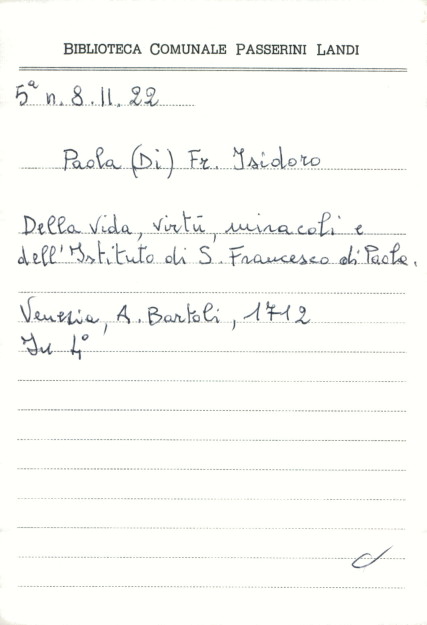 BIBLIOTECA COMUNALE PASSERINI LANDI
5ª n. 8.II.22
Paola (Di) Fr. Isidoro
Della vida, virtù, miracoli e
dell'Istituto di S. Francesco di Paola.
Venezia, A. Bartoli, 1712
In 4°